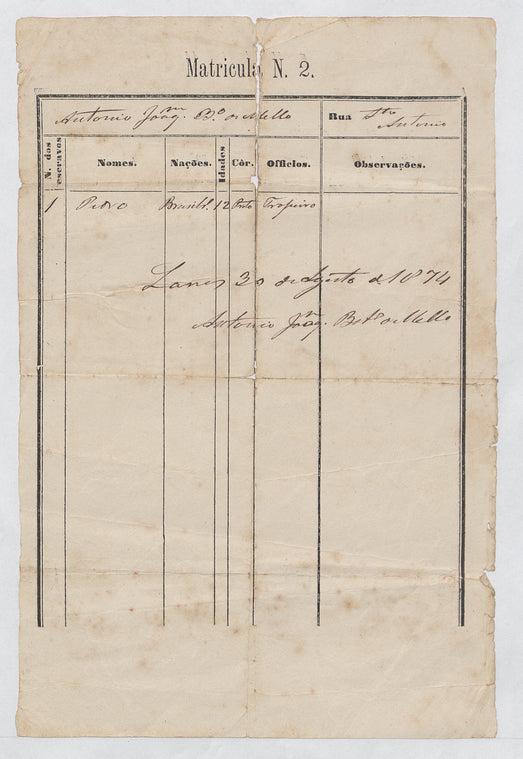 Matricula N. 2.
Antonio Joaq.m B.o de Mello
Rua Sto
Antonio
N. dos escravos
Nomes.
Nações.
Idades
Còr.
Officios.
Observações.
1 Pedro Brasilr.o 12 Preto Tropeiro
30 de Agosto de 1874
Antonio Joaq.m Bto de Mello